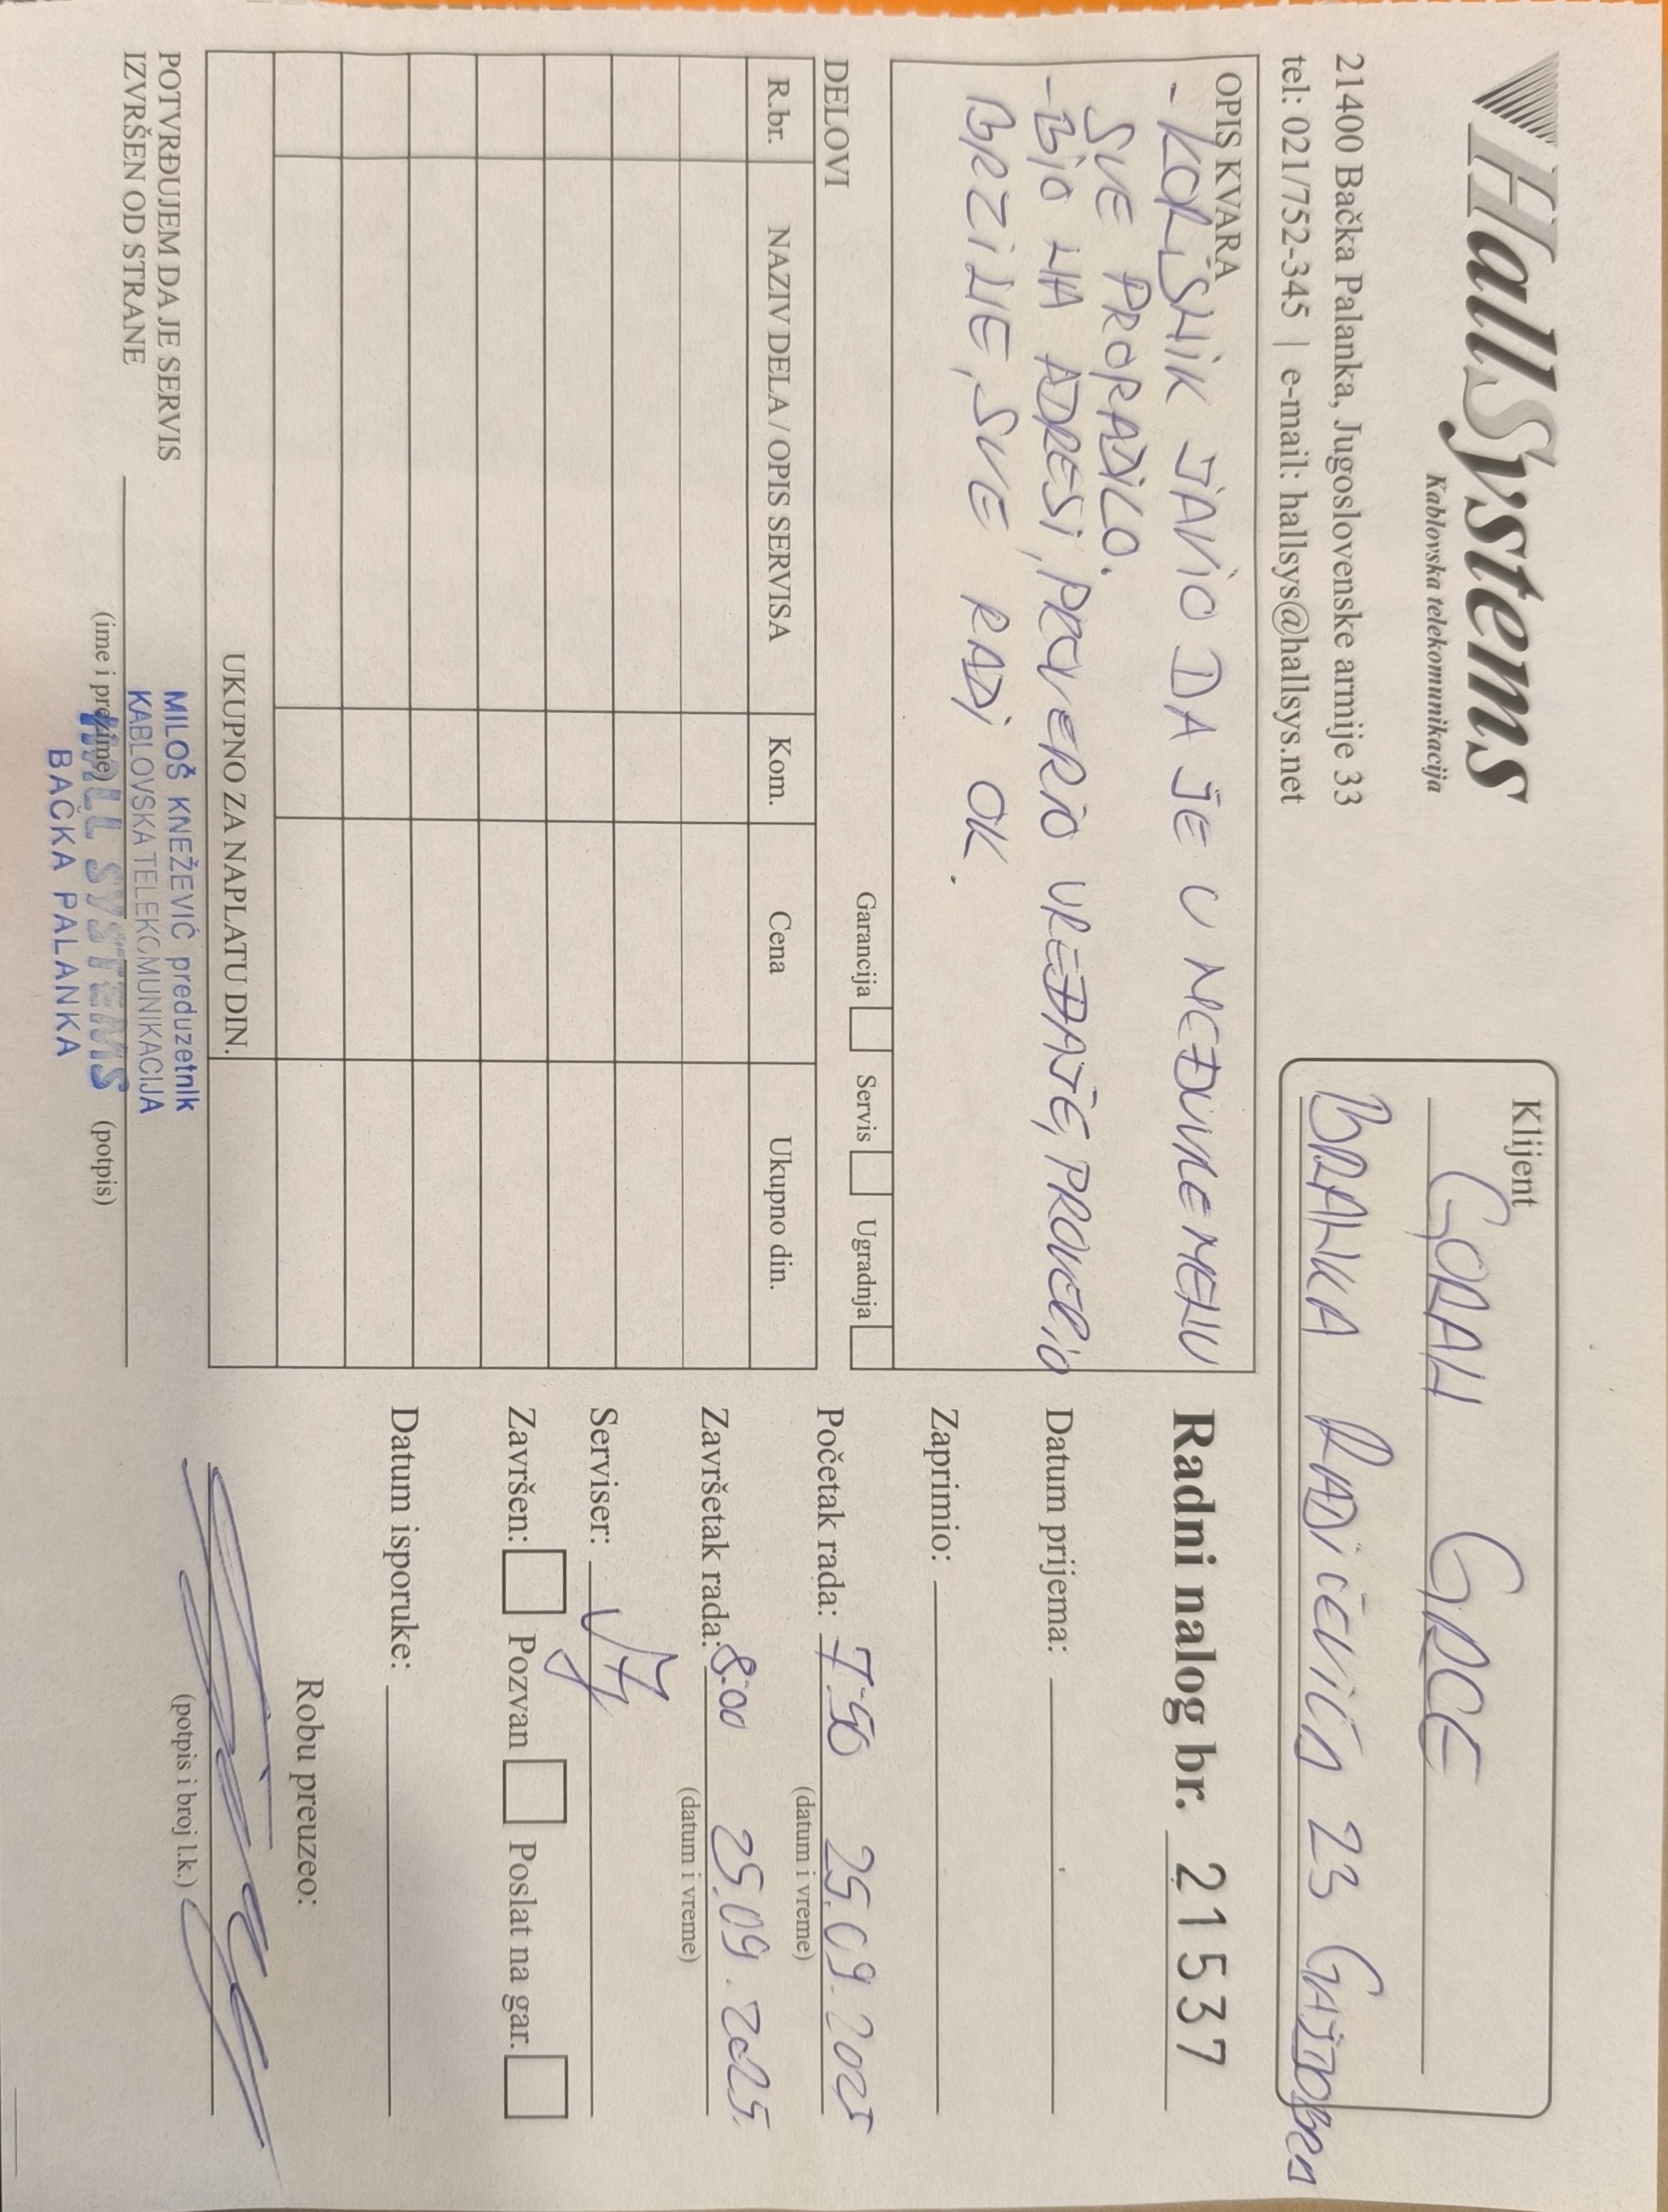 HallSystems
Kablovska telekomunikacija
21400 Bačka Palanka, Jugoslovenske armije 33
tel: 021/752-345 | e-mail: hallsys@hallsys.net
Klijent
GORAN GRCE
BRANKA RADIČEVIĆA 23 GAJDOBRA
OPIS KVARA
- KORISNIK JAVIO DA JE U MEĐUVREMENU
SVE PRORADILO.
- BIO NA ADRESI, PROVERIO UREĐAJE, PROVERIO
BRZINE, SVE RADI OK.
Garancija Servis Ugradnja
DELOVI
R.br. NAZIV DELA / OPIS SERVISA Kom. Cena Ukupno din.
UKUPNO ZA NAPLATU DIN.
POTVRĐUJEM DA JE SERVIS
IZVRŠEN OD STRANE
(ime i prezime) (potpis)
MILOŠ KNEŽEVIĆ preduzetnik
KABLOVSKA TELEKOMUNIKACIJA
HALL SYSTEMS
BAČKA PALANKA
Radni nalog br. 21537
Datum prijema:
Zaprimio:
Početak rada: 7:50 25.09.2025
(datum i vreme)
Završetak rada: 8:00 25.09.2025.
(datum i vreme)
Serviser:
Završen: Pozvan Poslat na gar.
Datum isporuke:
Robu preuzeo:
(potpis i broj l.k.)